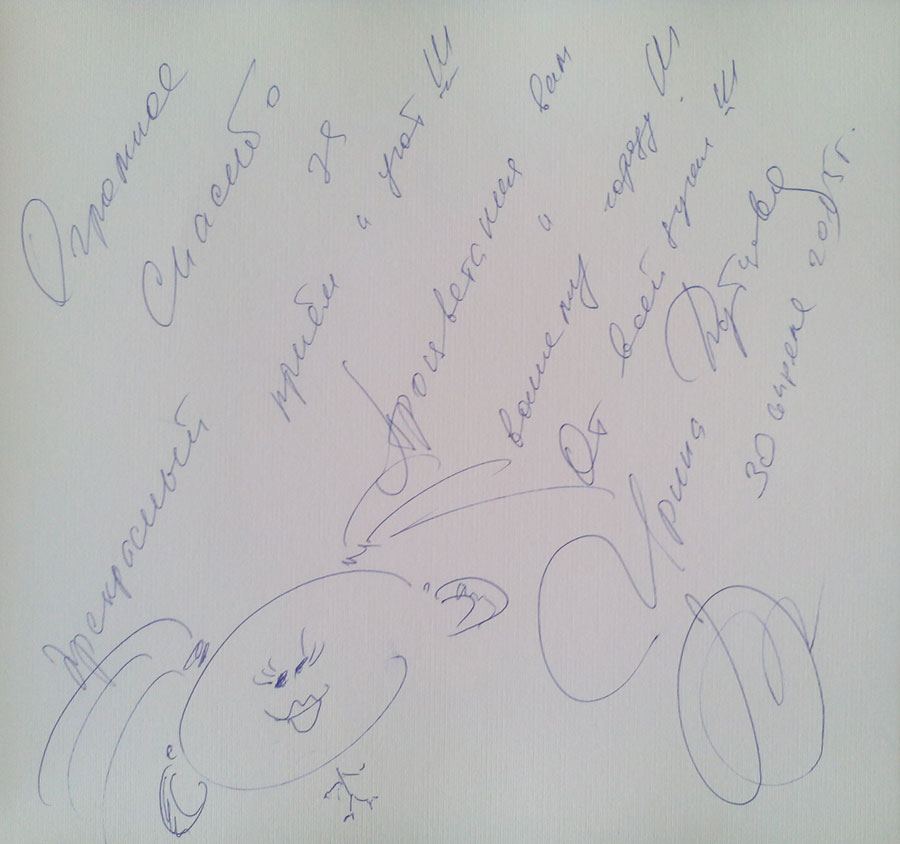 Огромное
Спасибо за
прекрасный приём и уют!!!
Процветания вам
и вашему городу!!!
От всей души!!!
Ирина
30 апреля 2005г.